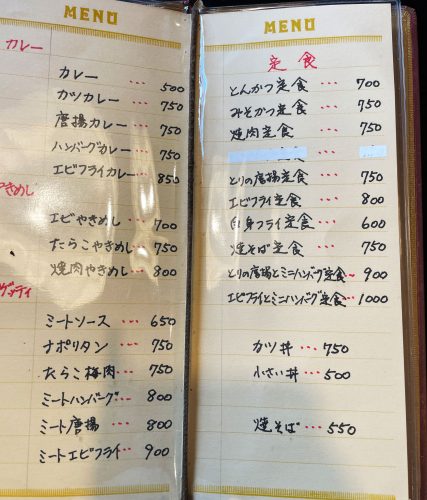 MENU
カレー
カレー ・・・ 500
カツカレー ・・・ 750
唐揚カレー ・・・ 750
ハンバーグカレー ・・・ 750
エビフライカレー ・・・ 850
やきめし
エビやきめし ・・・ 700
たらこやきめし ・・・ 750
焼肉やきめし ・・・ 800
ミートソース ・・・ 650
ナポリタン ・・・ 750
たらこ梅肉 ・・・ 750
ミートハンバーグ ・・・ 800
ミート唐揚 ・・・ 800
ミートエビフライ ・・・ 900
MENU
定食
とんかつ定食 ・・・ 700
みそかつ定食 ・・・ 750
焼肉定食 ・・・ 750
とりの唐揚定食 ・・・ 750
エビフライ定食 ・・・ 800
白身フライ定食 ・・・ 600
焼そば定食 ・・・ 750
とりの唐揚とミニハンバーグ定食 ・・ 900
エビフライとミニハンバーグ定食 ・・・ 1000
カツ丼 ・・・ 750
小さい丼 ・・・ 500
焼そば ・・・ 550